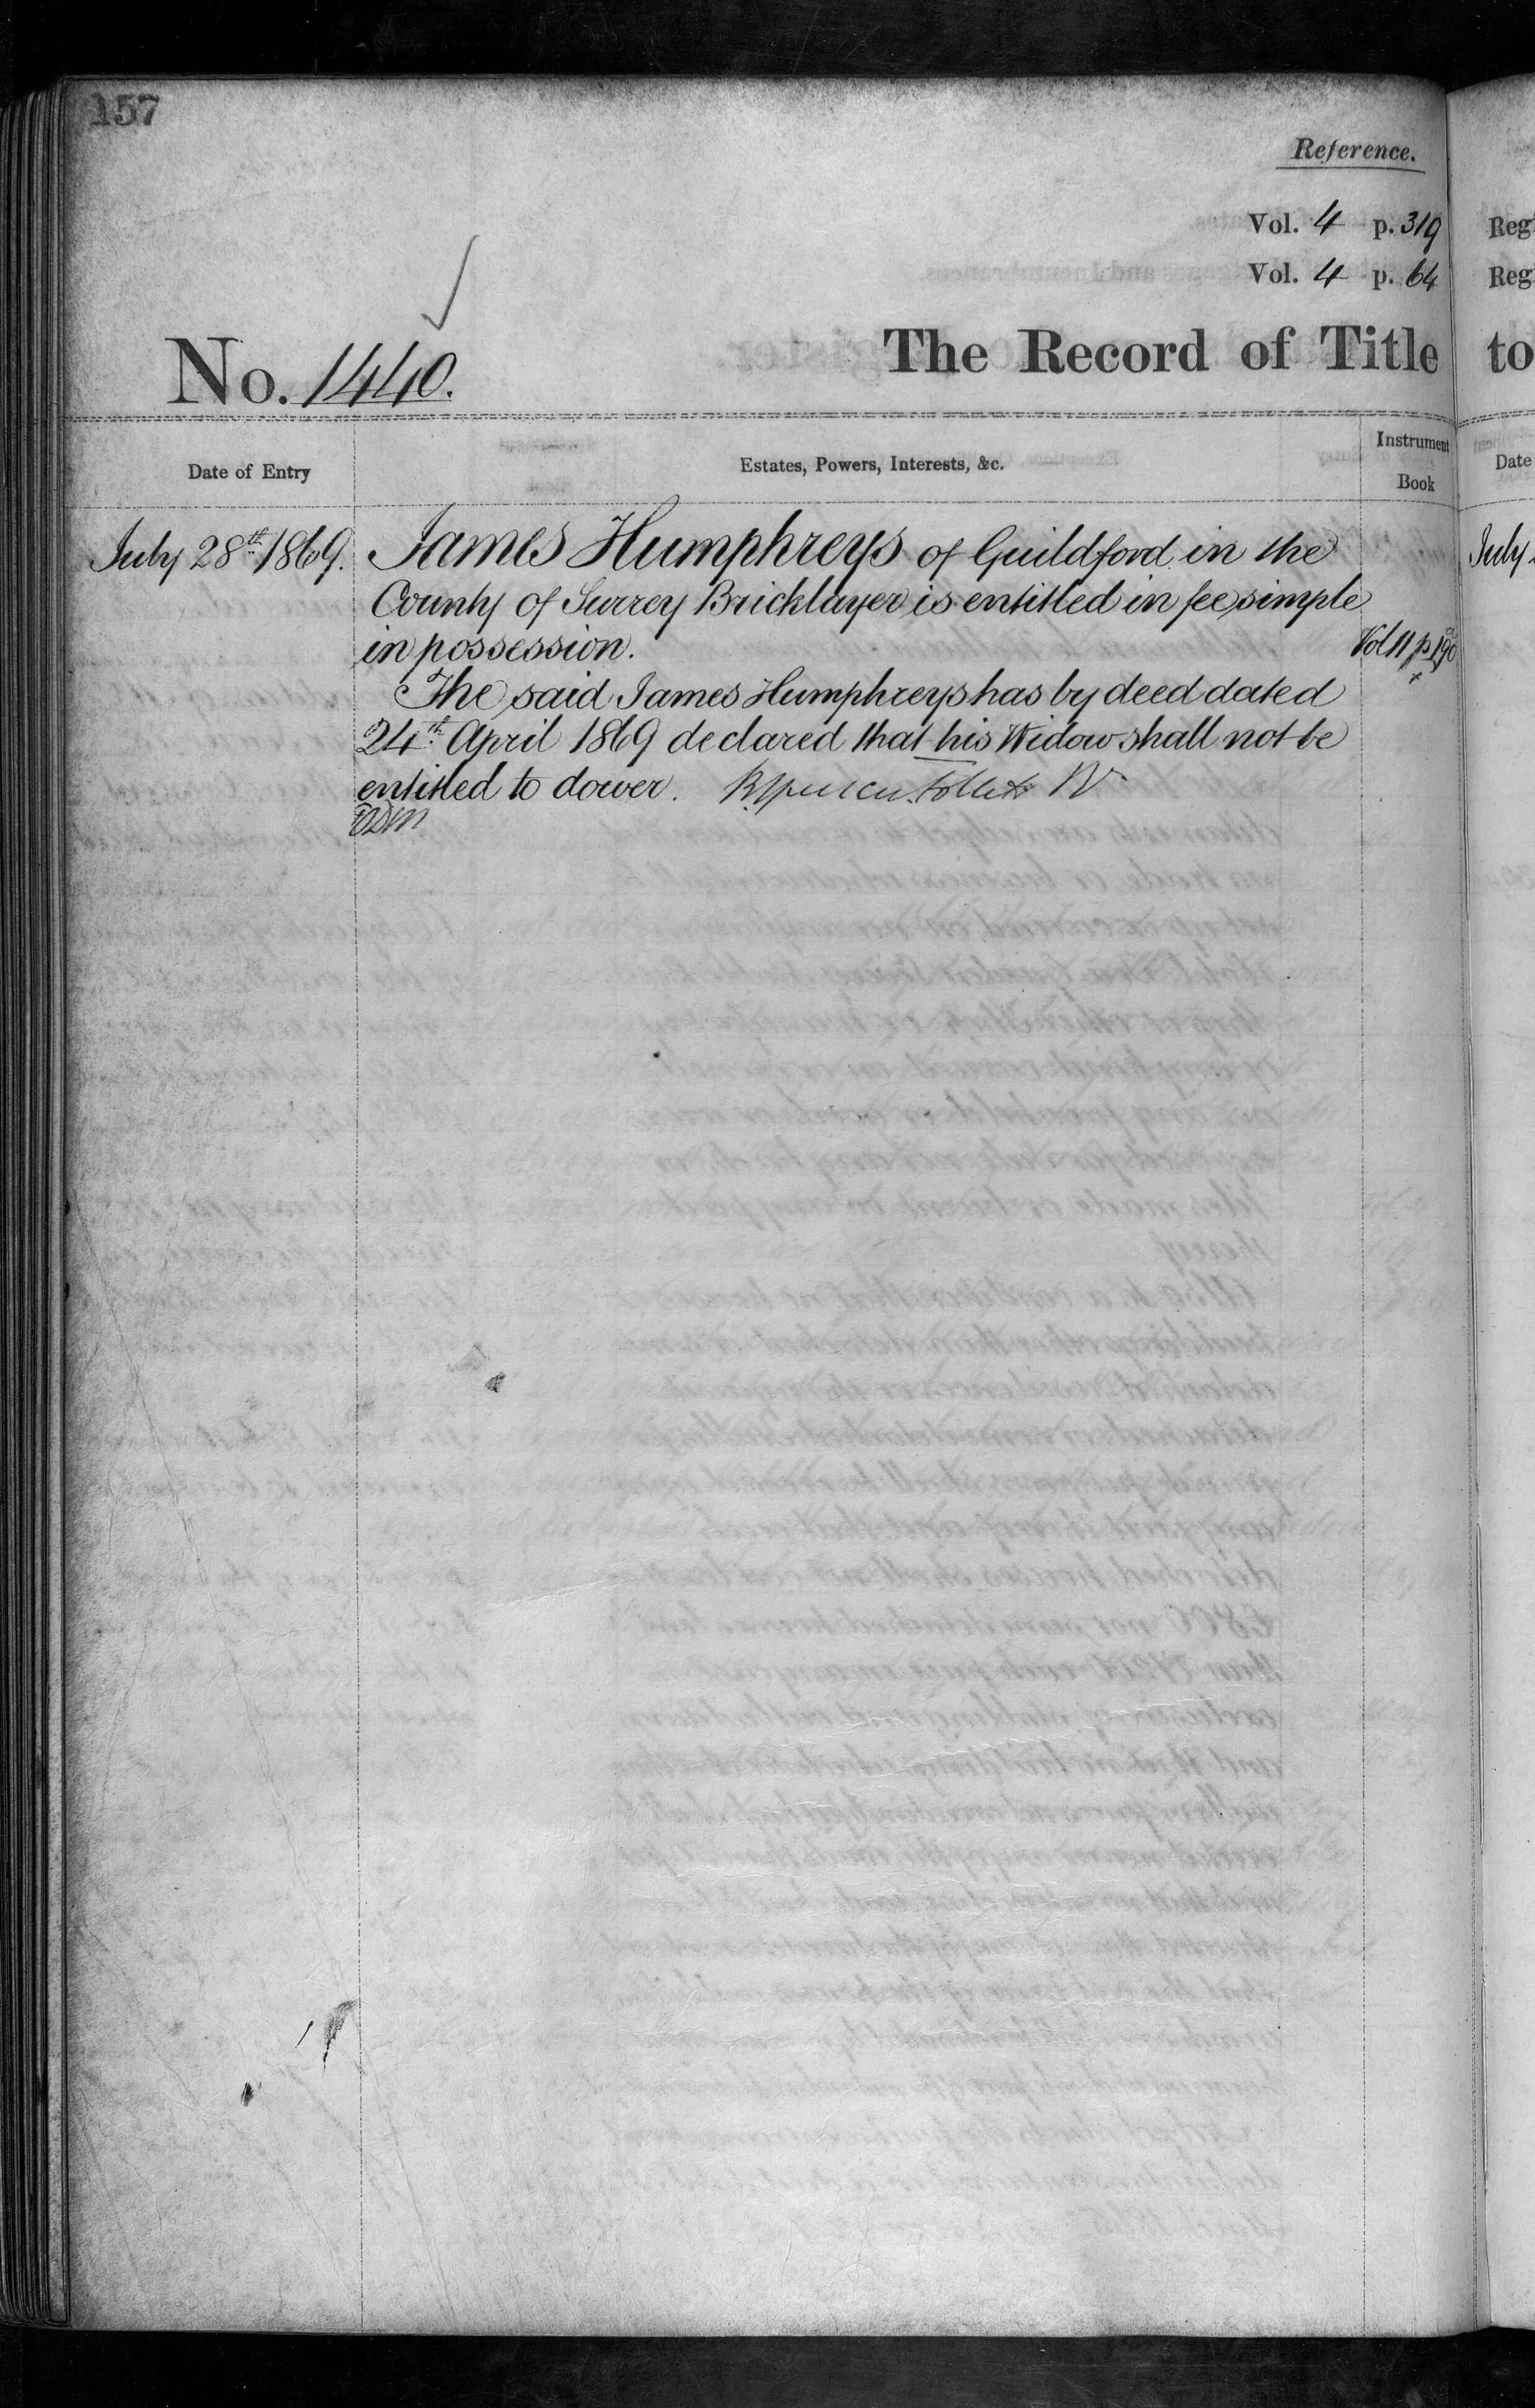 157
Reference.
Vol. 4 p. 319
Vol. 4 p. 64
No. 1440.
The Record of Title
to
Date of Entry
Estates, Powers, Interests, &c.
Instrument
Book
Date
July 28th 1869.
James Humphreys of Guildford in the
County of Surrey Bricklayer is entitled in fee simple
in possession.
Vol 11 p 190
The said James Humphreys has by deed dated
24th April 1869 declared that his Widow shall not be
entitled to dower.
Reg
Reg
July